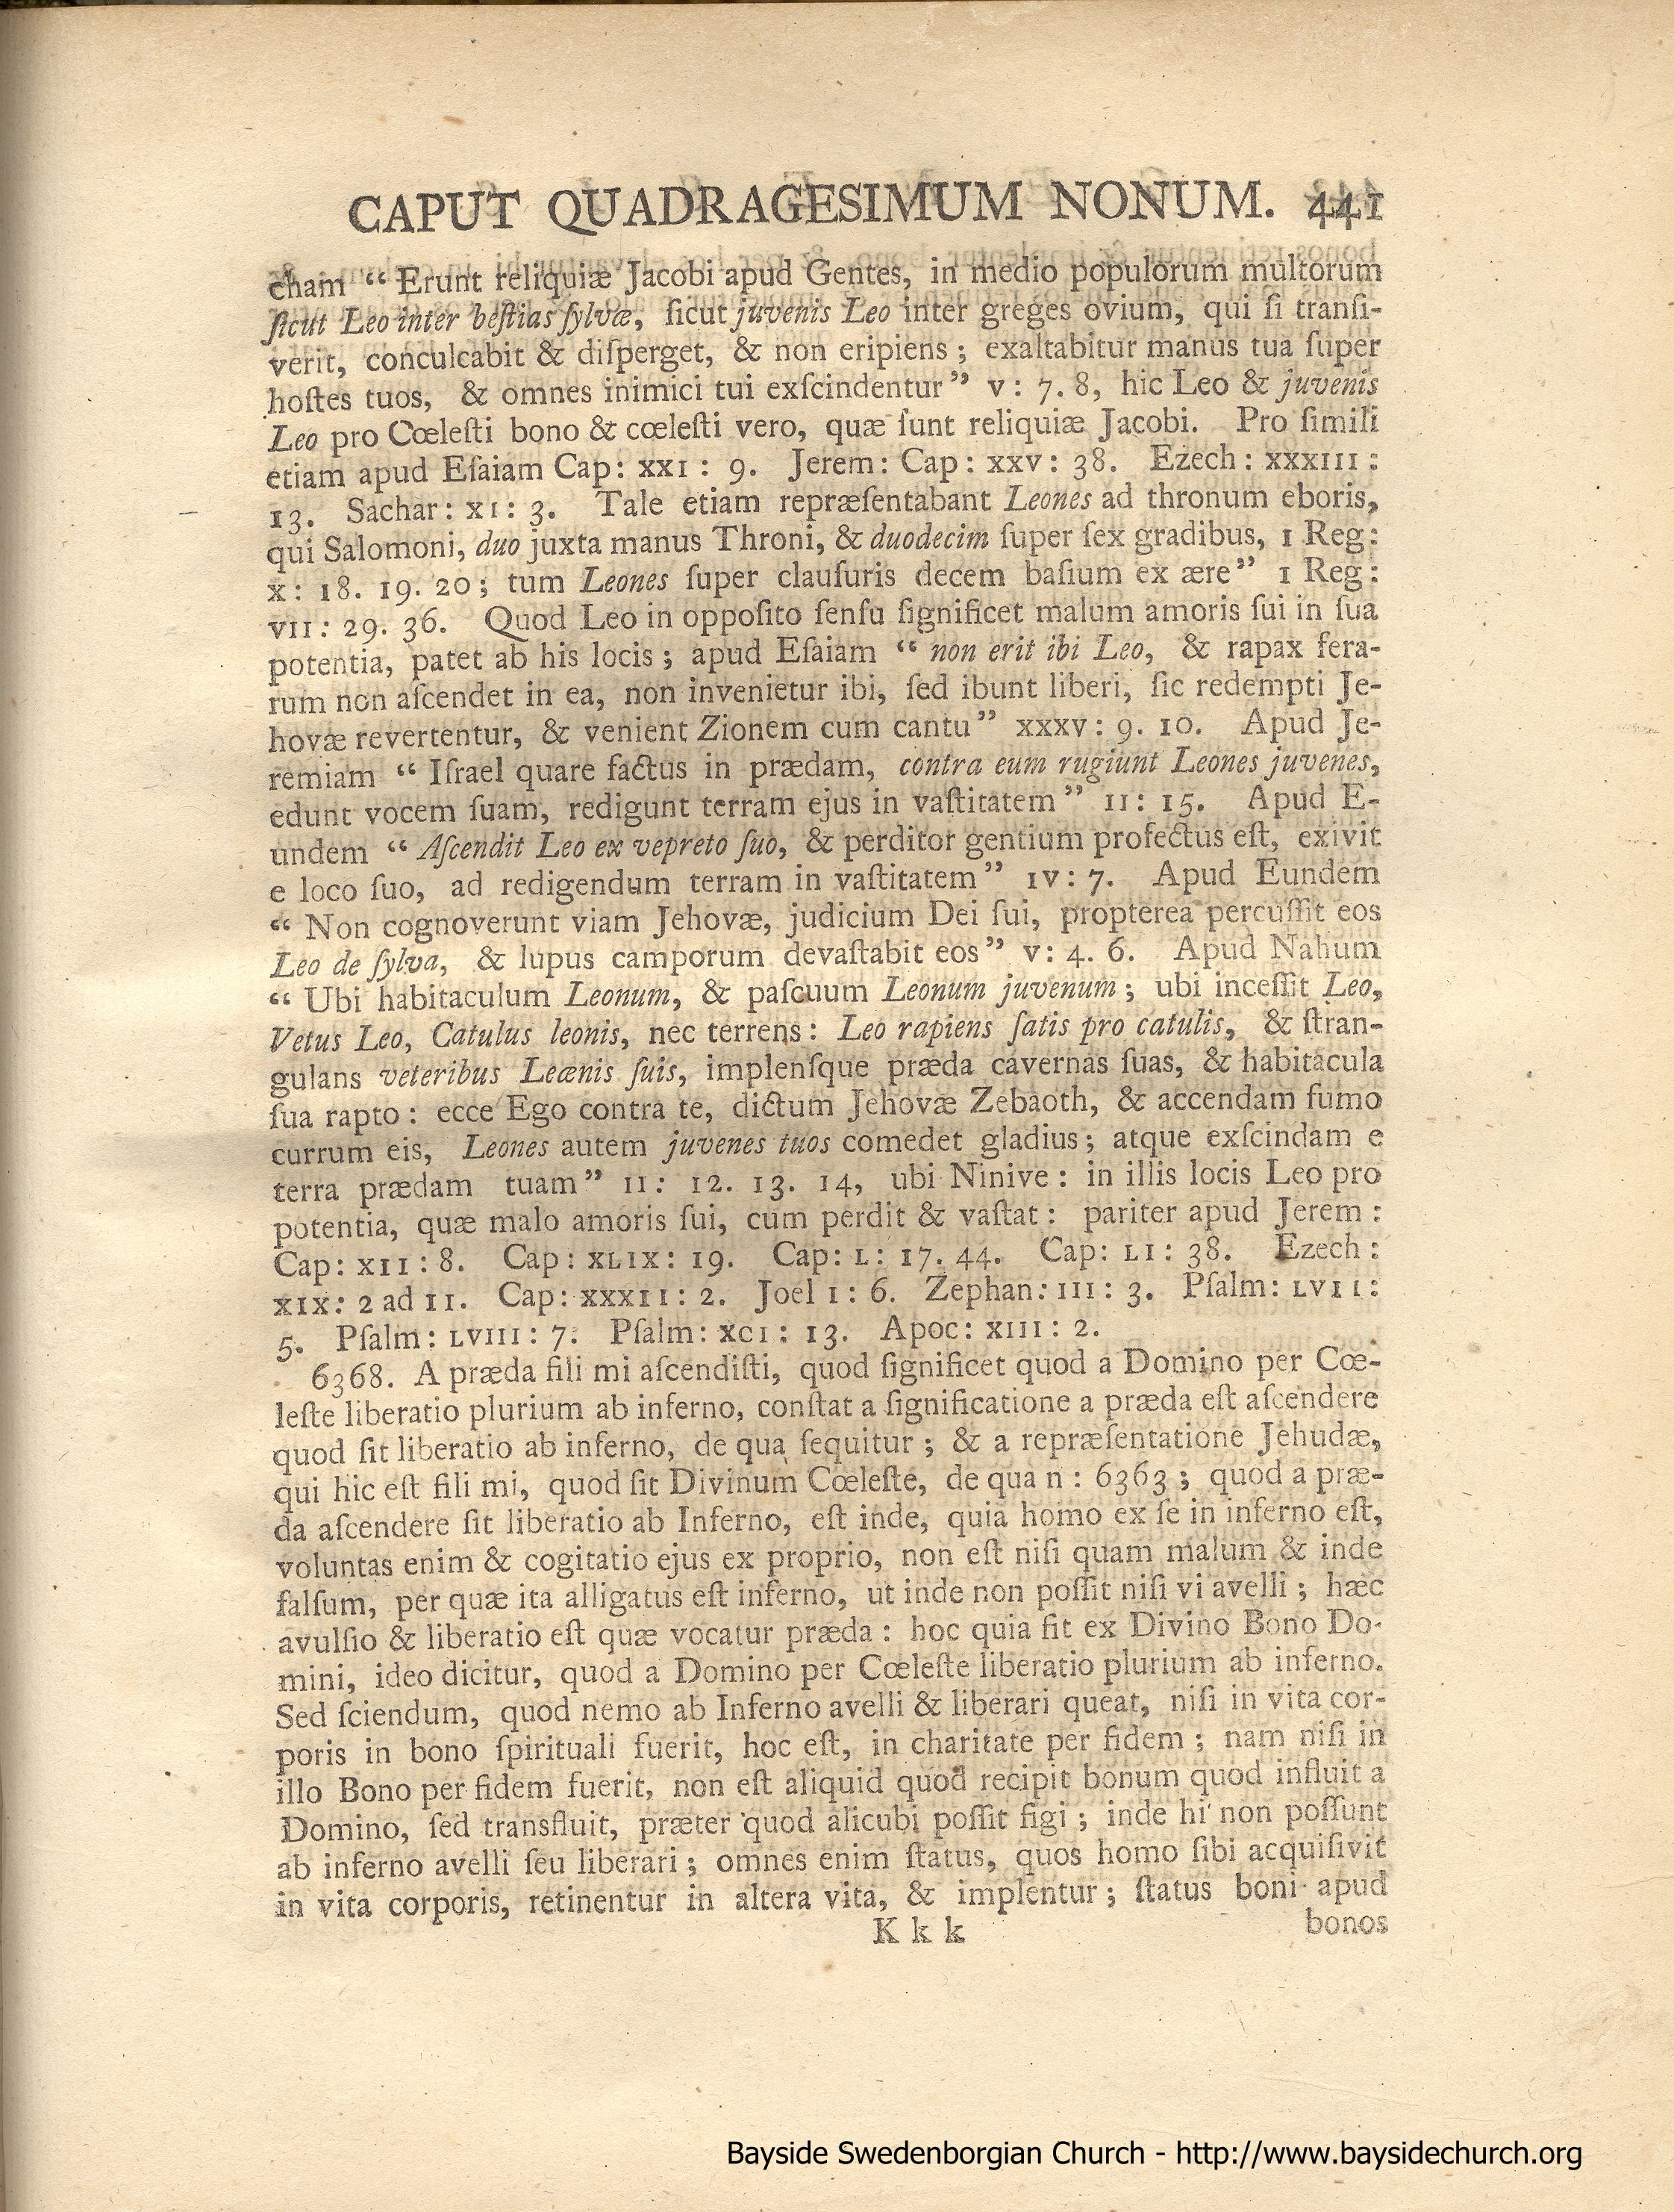 CAPUT QUADRAGESIMUM NONUM. 441
cham “ Erunt reliquiæ Jacobi apud Gentes, in medio populorum multorum
ſicut Leo inter beſtias ſylvæ, ſicut juvenis Leo inter greges ovium, qui ſi tranſi-
verit, conculcabit & diſperget, & non eripiens ; exaltabitur manus tua ſuper
hoſtes tuos, & omnes inimici tui exſcindentur” v : 7. 8, hic Leo & juvenis
Leo pro Cœleſti bono & cœleſti vero, quæ ſunt reliquiæ Jacobi. Pro ſimili
etiam apud Eſaiam Cap: XXI : 9. Jerem: Cap: XXV: 38. Ezech: XXXIII :
13. Sachar: XI: 3. Tale etiam repræſentabant Leones ad thronum eboris,
qui Salomoni, duo juxta manus Throni, & duodecim ſuper ſex gradibus, 1 Reg:
X: 18. 19. 20; tum Leones ſuper clauſuris decem baſium ex ære” 1 Reg:
VII: 29. 36. Quod Leo in oppoſito ſenſu ſignificet malum amoris ſui in ſua
potentia, patet ab his locis ; apud Eſaiam “ non erit ibi Leo, & rapax fera-
rum non aſcendet in ea, non invenietur ibi, ſed ibunt liberi, ſic redempti Je-
hovæ revertentur, & venient Zionem cum cantu” XXXV: 9. 10. Apud Je-
remiam “ Iſrael quare factus in prædam, contra eum rugiunt Leones juvenes,
edunt vocem ſuam, redigunt terram ejus in vaſtitatem” II: 15. Apud E-
undem “ Aſcendit Leo ex vepreto ſuo, & perditor gentium profectus eſt, exivit
e loco ſuo, ad redigendum terram in vaſtitatem” IV: 7. Apud Eundem
“ Non cognoverunt viam Jehovæ, judicium Dei ſui, propterea percuſſit eos
Leo de ſylva, & lupus camporum devaſtabit eos” V: 4. 6. Apud Nahum
“ Ubi habitaculum Leonum, & paſcuum Leonum juvenum ; ubi inceſſit Leo,
Vetus Leo, Catulus leonis, nec terrens: Leo rapiens ſatis pro catulis, & ſtran-
gulans veteribus Leænis ſuis, implenſque præda cavernas ſuas, & habitacula
ſua rapto : ecce Ego contra te, dictum Jehovæ Zebaoth, & accendam fumo
currum eis, Leones autem juvenes tuos comedet gladius; atque exſcindam e
terra prædam tuam” II: 12. 13. 14, ubi Ninive: in illis locis Leo pro
potentia, quæ malo amoris ſui, cum perdit & vaſtat: pariter apud Jerem :
Cap: XII : 8. Cap: XLIX: 19. Cap: L: 17. 44. Cap: LI: 38. Ezech :
XIX: 2 ad 11. Cap: XXXII: 2. Joel I : 6. Zephan: III: 3. Pſalm: LVII:
5. Pſalm: LVIII: 7. Pſalm: XCI: 13. Apoc: XIII: 2.
6368. A præda fili mi aſcendiſti, quod ſignificet quod a Domino per Cœ-
leſte liberatio plurium ab inferno, conſtat a ſignificatione a præda eſt aſcendere
quod ſit liberatio ab inferno, de qua ſequitur ; & a repræſentatione Jehudæ,
qui hic eſt fili mi, quod ſit Divinum Cœleſte, de qua n : 6363 ; quod a præ-
da aſcendere ſit liberatio ab Inferno, eſt inde, quia homo ex ſe in inferno eſt,
voluntas enim & cogitatio ejus ex proprio, non eſt niſi quam malum & inde
falſum, per quæ ita alligatus eſt inferno, ut inde non poſſit niſi vi avelli ; hæc
avulſio & liberatio eſt quæ vocatur præda : hoc quia fit ex Divino Bono Do-
mini, ideo dicitur, quod a Domino per Cœleſte liberatio plurium ab inferno.
Sed ſciendum, quod nemo ab Inferno avelli & liberari queat, niſi in vita cor-
poris in bono ſpirituali fuerit, hoc eſt, in charitate per fidem ; nam niſi in
illo Bono per fidem fuerit, non eſt aliquid quod recipit bonum quod influit a
Domino, ſed transfluit, præter quod alicubi poſſit figi ; inde hi non poſſunt
ab inferno avelli ſeu liberari ; omnes enim ſtatus, quos homo ſibi acquiſivit
in vita corporis, retinentur in altera vita, & implentur ; ſtatus boni apud
K k k bonos
Bayside Swedenborgian Church - http://www.baysidechurch.org